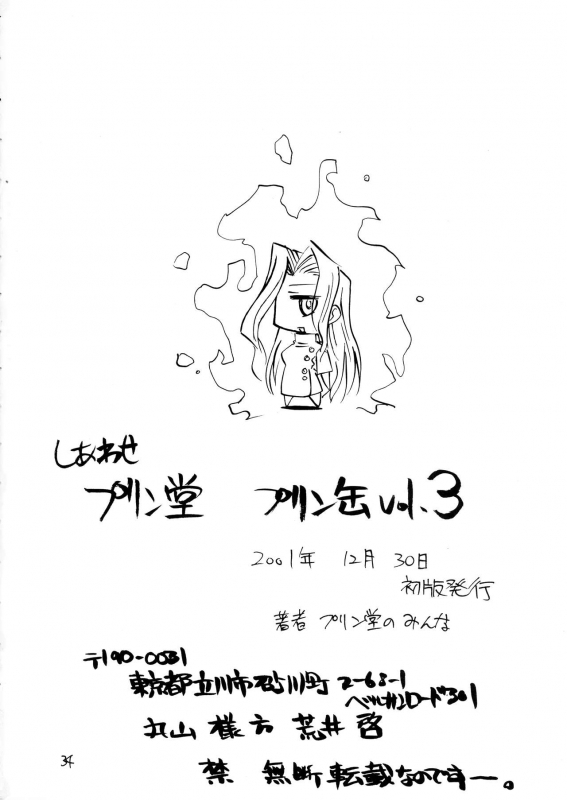 しあわせ
プリン堂 プリン缶 vol.3
2001年 12月 30日
初版発行
著者 プリン堂のみんな
〒190-0031
東京都立川市砂川町 2-63-1
301
丸山様方 荒井 啓
禁 無断転載なのですー。
34